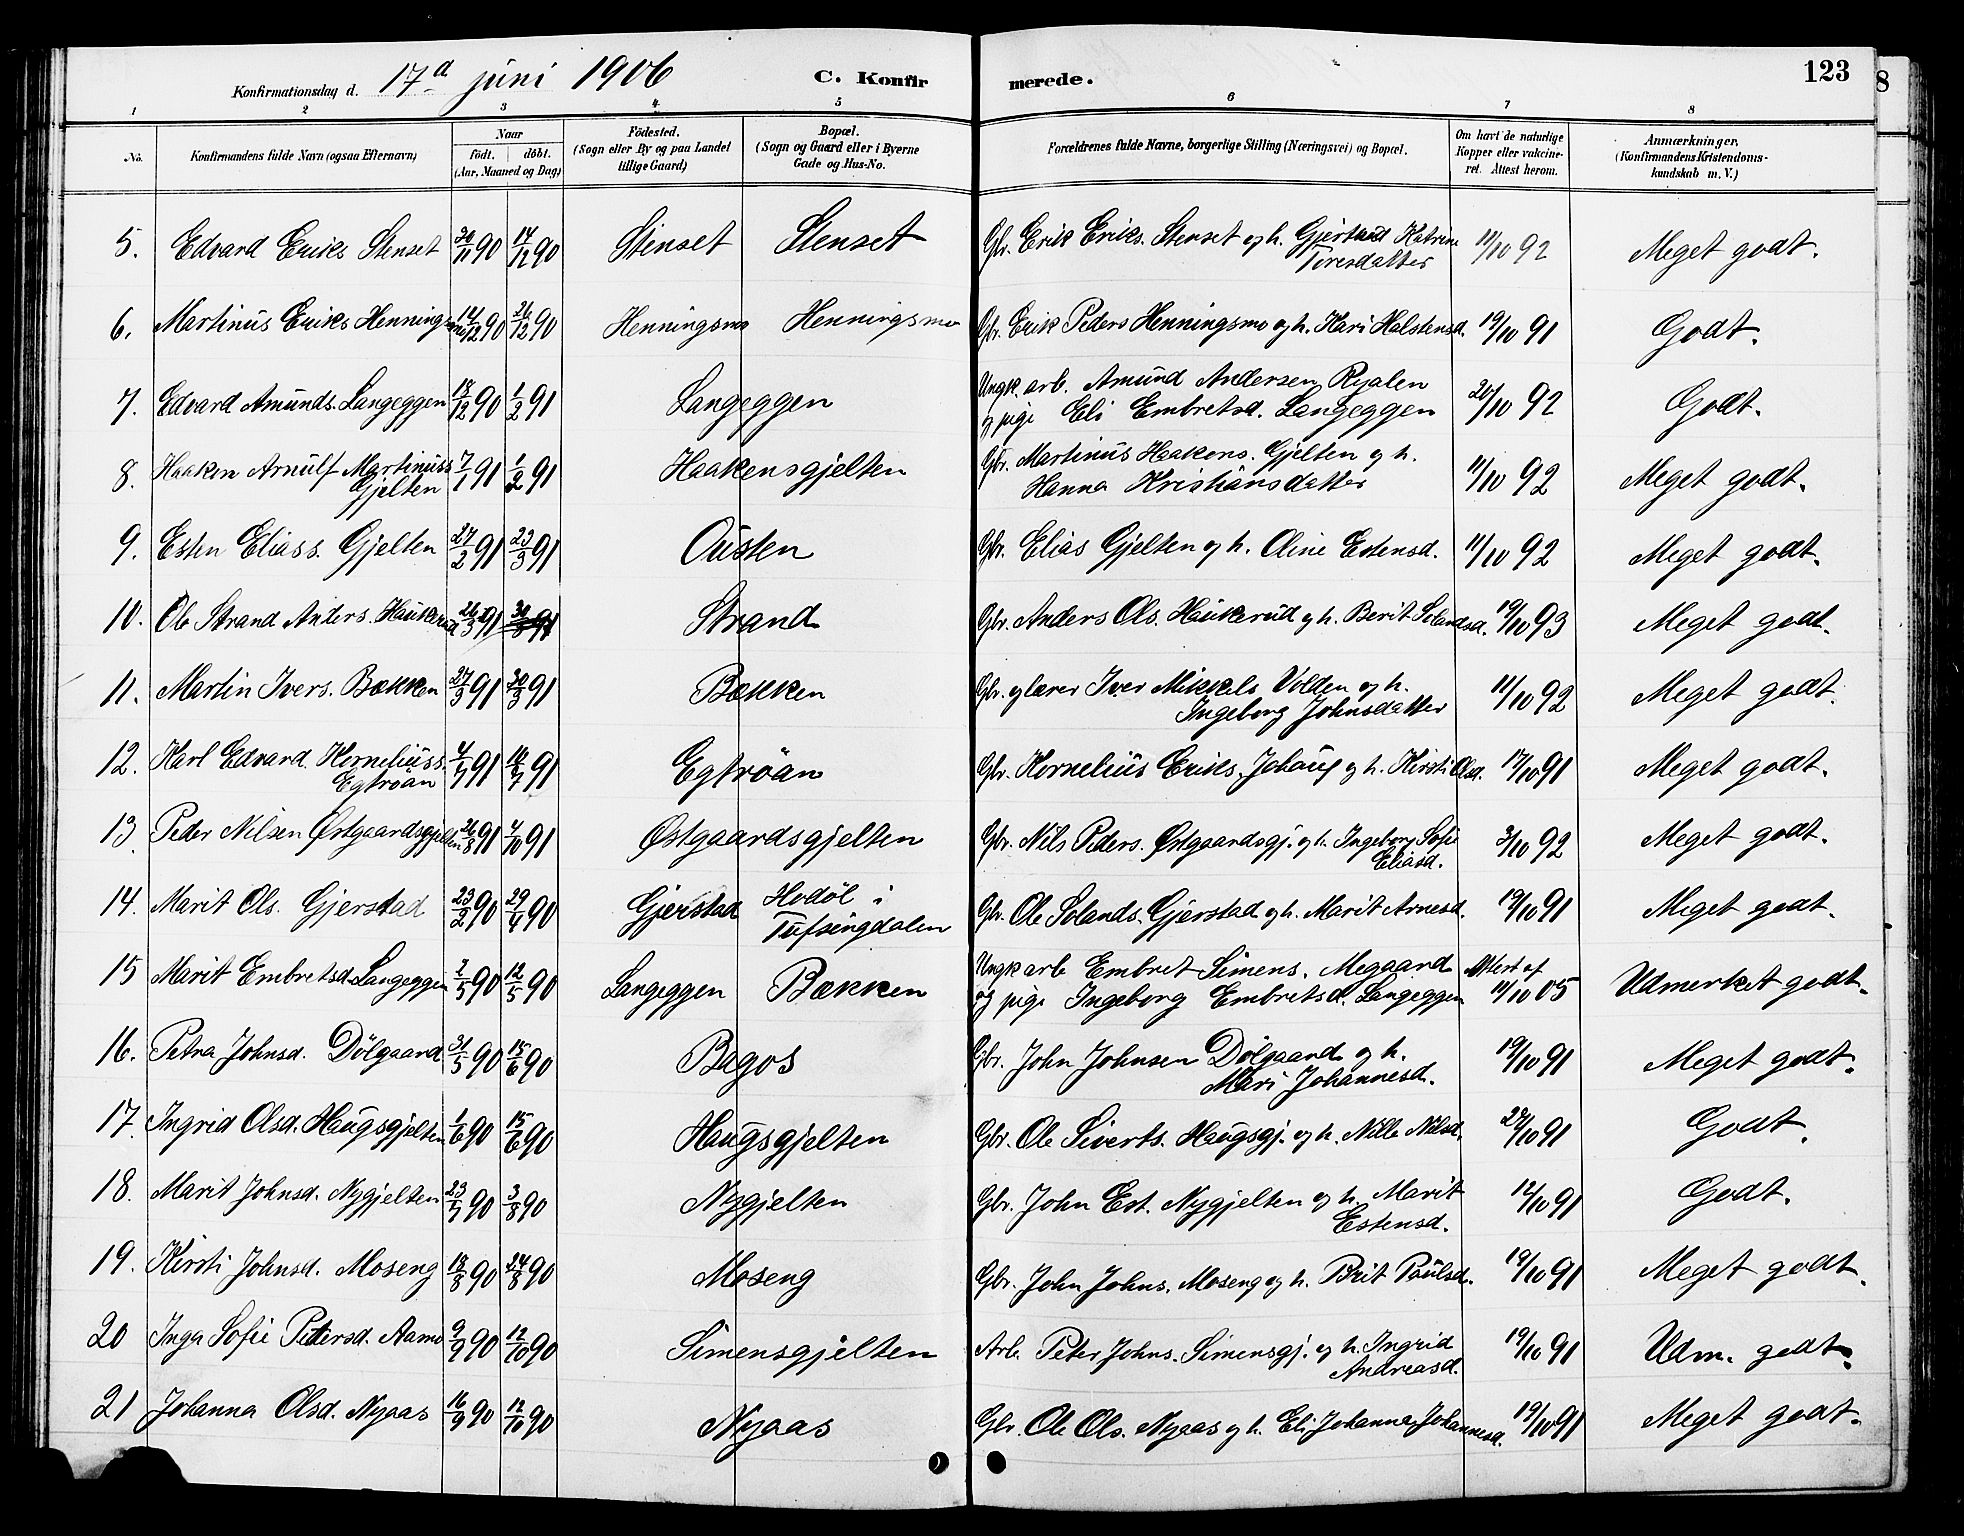 Konfirmationsdag d. 17d juni 1906 C. Konfirmerede. 123
8
1 2 3 4 5 6 7 8
No. Konfirmandens fulde Navn (ogsaa Efternavn) Naar födt. döbt. (Aar, Maaned og Dag) Födested. (Sogn eller By og paa Landet tillige Gaard) Bopæl. (Sogn og Gaard eller i Byerne Gade og Hus-No. Forældrenes fulde Navne, borgerlige Stilling (Næringsvei) og Bopæl. Om havt de naturlige Kopper eller vakcineret. Attest herom. Anmærkninger. (Konfirmandens Kristendomskundskab m. V.)
5. Edvard Eriks Stenset 30/11 90 14/12 90 Stenset Stenset Gbr. Erik Eriks. Stenset og h. Gjertrud Katrine Toresdatter 11/10 92 Meget godt.
6. Martinus Eriks Henningsmo 14/12 90 26/12 90 Henningsmo Henningsmo Gbr. Erik Peders Henningsmo og h. Kari Halstensd. 19/10 91 Godt.
7. Edvard Amunds. Langeggen 18/12 90 1/2 91 Langeggen Ungk. arb. Amund Andersen Ryalen
og pige Eli Embretsd. Langeggen 20/10 92 Godt.
8. Haaken Arnulf Martinuss Gjelten 7/1 91 1/2 91 Haakensgjelten Gbr. Martinus Haakens. Gjelten og h.
Hanna Kristiansdatter 11/10 92 Meget godt.
9. Esten Eliass. Gjelten 27/2 91 23/3 91 Ousten Gbr. Elias Gjelten og h. Oline Estensd. 11/10 92 Meget godt.
10. Ole Strand Anders. Haukerud 26/3 91 30/3 91 Strand Gbr. Anders Ols. Haukerud og h. Berit Solandsd. 19/10 93 Meget godt.
11. Martin Ivers. Bækken 27/3 91 30/3 91 Bækken Gbr. og lærer Iver Mikkels Volden og h.
Ingeborg Johnsdatter 11/10 92 Meget godt.
12. Karl Edvard Korneliuss. Egtröan 4/7 91 /7 91 Egtröan Gbr. Kornelius Eriks. Johaug og h. Kirsti Olsd. 17/10 91 Meget godt.
13 Peder Nilsen Østgaardsgjelten 26/8 91 4/10 91 Østgaardsgjelten Gbr. Nils Peders. Østgaardsgj. og h. Ingeborg Sofie
Eliasd. 3/10 92 Meget godt.
14. Marit Ols. Gjerstad 23/2 90 29/4 90 Gjerstad Hodøl i
Tufsingdalen Gbr. Ole Solands. Gjerstad og h. Marit Arnesd. 19/10 91 Meget godt.
15 Marit Embretsd. Langeggen 2/5 90 12/5 90 Langeggen Bækken Ungk arb Embret Simens. Megaard
og pige Ingeborg Embretsd. Langeggen Attest af 11/10 05 Udmerket godt.
16. Petra Johnsd. Dølgaard 31/5 90 15/6 90 Bagos Gbr. John Johnsen Dølgaard og h.
Mari Johannesd. 19/10 91 Meget godt.
17. Ingrid Olsd. Haugsgjelten 1/6 90 15/6 90 Haugsgjelten Gbr. Ole Siverts. Haugsgj. og h. Nille Nilsd. 24/10 91 Godt.
18. Marit Johnsd. Nygjelten 23/7 90 3/8 90 Nygjelten Gbr. John Est. Nygjelten og h. Marit
Estensd. 12/10 91 Godt.
19. Kirsti Johnsd. Moseng 18/8 90 24/8 90 Moseng Gbr. John Johns. Moseng og h. Brit Paulsd. 19/10 91 Meget godt.
20 Inga Sofie Petersd. Aamo 9/9 90 12/10 90 Simensgjelten Arb. Peter Johns. Simensgj. og h. Ingrid
Andreasd. 19/10 91 Udm. godt.
21 Johanna Olsd. Nyaas 16/9 90 12/10 90 Nyaas Gbr. Ole Ols. Nyaas og h. Eli Johanna Johannesd. 19/10 91 Meget godt.